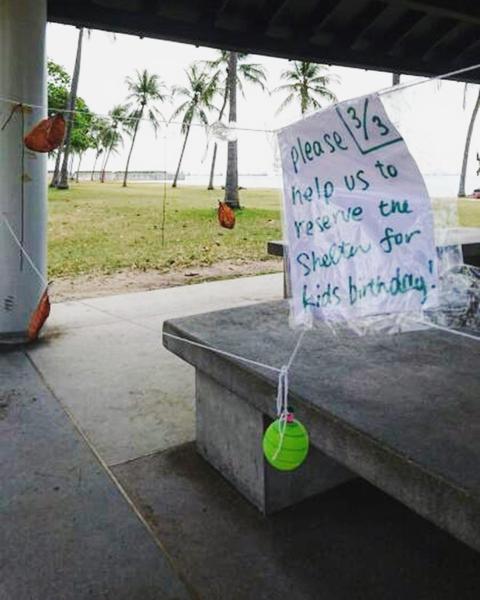 please 3/3
help us to
reserve the
Shelter for
kids birthday!